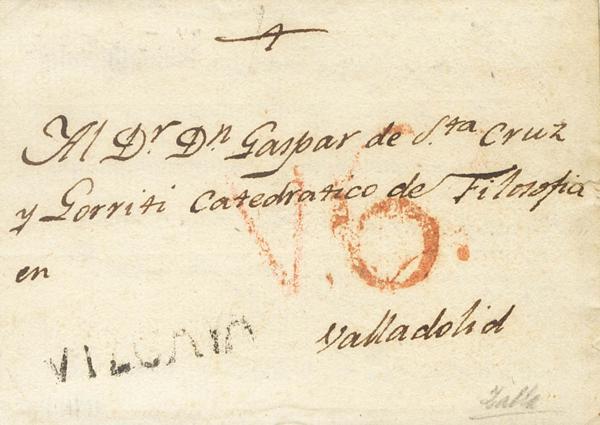 4
Al Dr. Dn Gaspar de Sta Cruz
y Gorriti Catedratico de Filosofia
en
V.6.
Valladolid
VIZCAIA